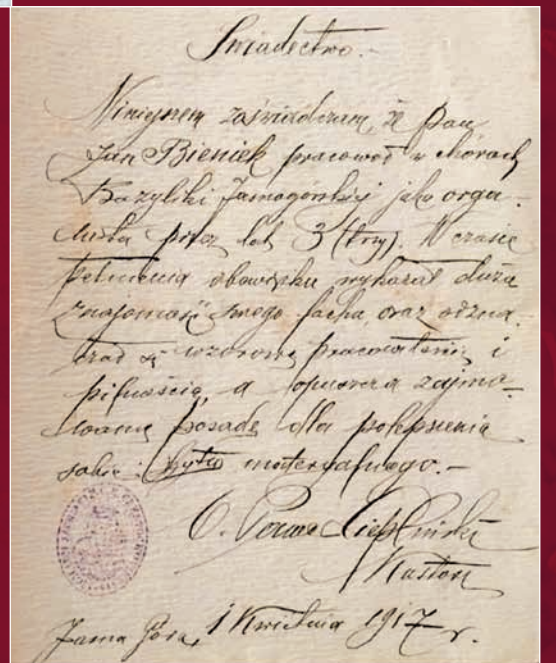 Świadectwo.-
Niniejszem zaświadczam, że pan
Jan Bieniek pracował w chórach
Bazyliki Jasnogórskiej jako orga-
nista przez lat 3 (trzy). W czasie
pełnienia obowiązku wykazał dużą
znajomość swego fachu, oraz odzna-
czał się wzorową pracowitością i
pilnością, a opuszcza zajmo-
waną posadę dla polepszenia
sobie bytu materyalnego.-
O.
Kustosz
Jasna Góra, 1 Kwietnia 1917 r.